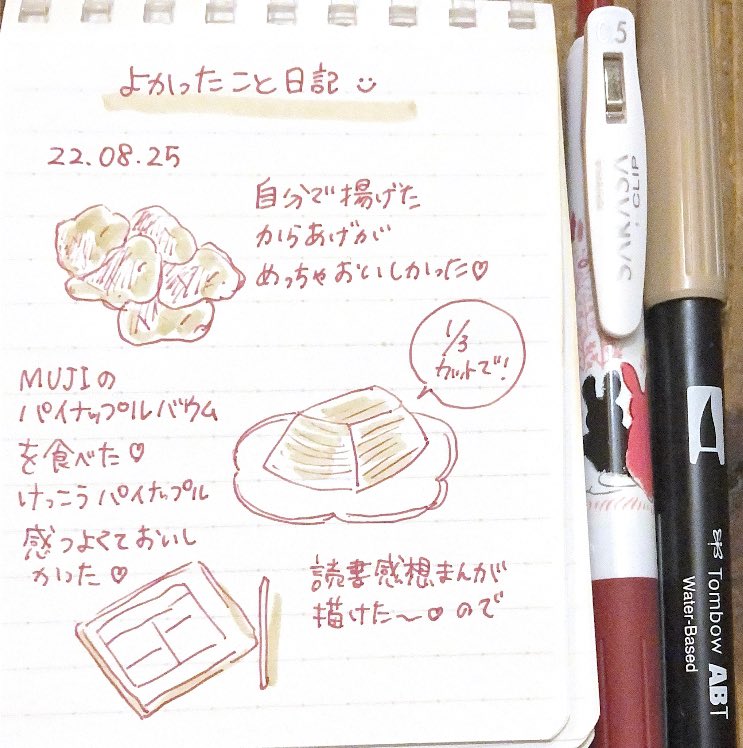 よかったこと日記
22.08.25
自分で揚げた
からあげが
めっちゃおいしかった♡
1/3
カットで!
MUJIの
パイナップルバウム
を食べた♡
けっこうパイナップル
感つよくておいし
かった♡
読書感想まんが
描けた〜♡ので
0.5
SARASA
CLIP
Tombow ABT
Water-Based